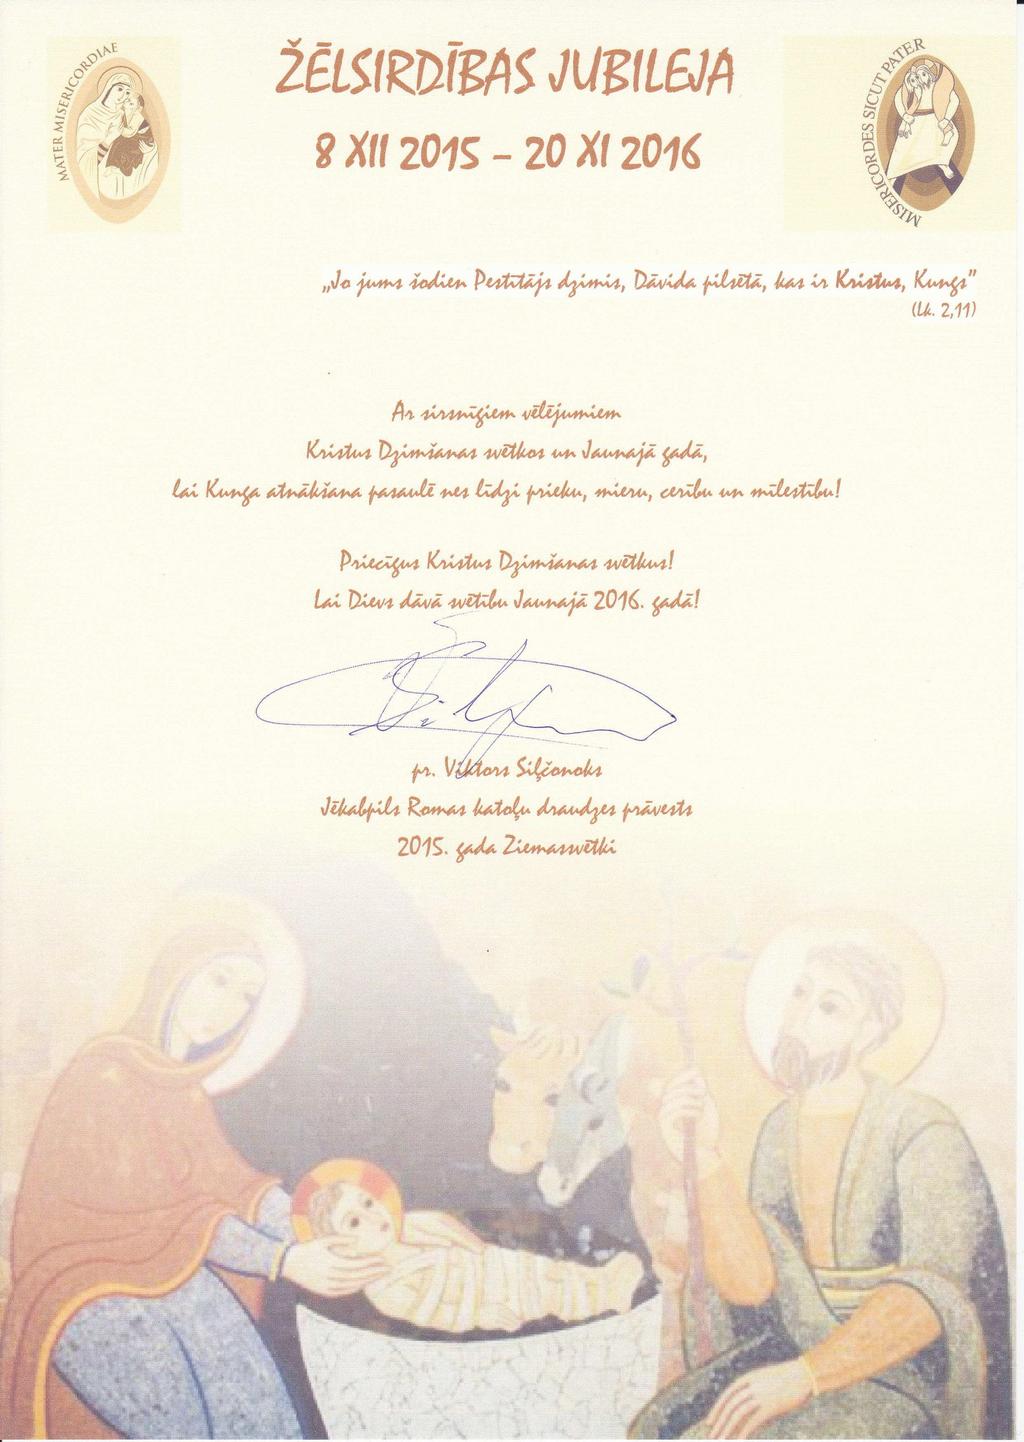 MATER MISERICORDIAE
ŽĒLSIRDĪBAS JUBILEJA
MISERICORDES SICUT PATER
8 XII 2015 – 20 XI 2016
„Jo jums šodien Pestītājs dzimis, Dāvida pilsētā, kas ir Kristus, Kungs”
(Lk. 2,11)
Ar sirsnīgiem vēlējumiem
Kristus Dzimšanas svētkos un Jaunajā gadā,
lai Kunga atnākšana pasaulē nes līdzi prieku, mieru, cerību un mīlestību!
Priecīgus Kristus Dzimšanas svētkus!
Lai Dievs dāvā svētību Jaunajā 2016. gadā!
pr. Viktors Siļčonoks
Jēkabpils Romas katoļu draudzes prāvests
2015. gada Ziemassvētki